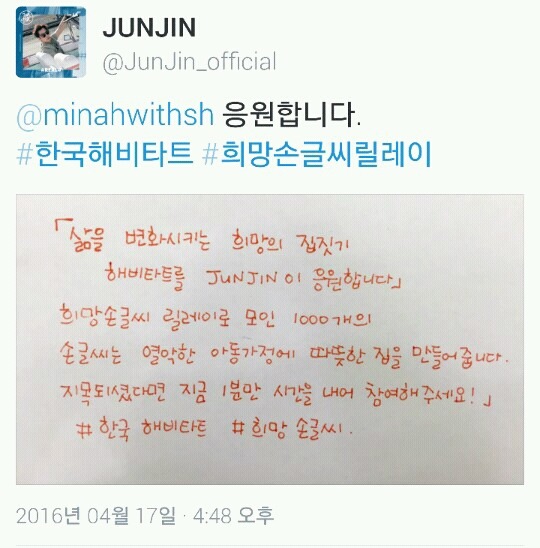 JUNJIN
@JunJin_official
@minahwithsh 응원합니다.
#한국해비타트 #희망손글씨릴레이
「삶을 변화시키는 희망의 집짓기
해비타트를 JUNJIN이 응원합니다」
희망손글씨 릴레이로 모인 1000개의
손글씨는 열악한 아동가정에 따뜻한 집을 만들어줍니다.
지목되셨다면 지금 1분만 시간을 내어 참여해주세요!」
#한국 해비타트 #희망 손글씨.
2016년 04월 17일 · 4:48 오후